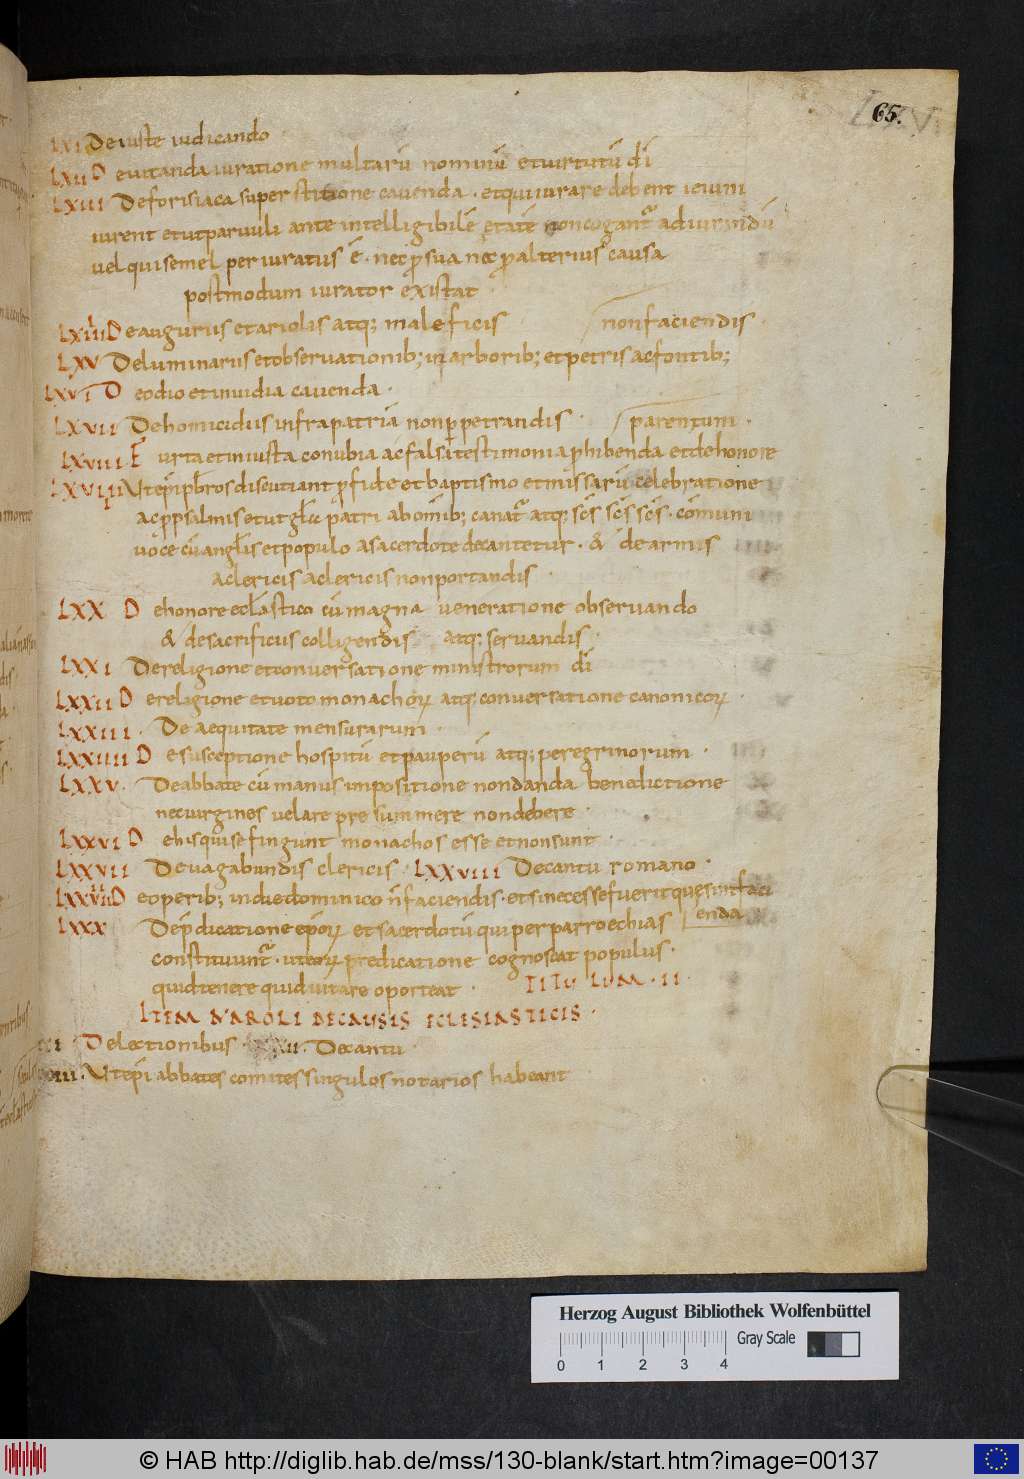 65.
LXI De iuste iudicando
LXII D euitanda iuratione multarū nominū et uirtutū dī
LXIII De forisiaca superstitione cauenda · et qui iurare debent ieiuni
iurent et ut paruuli ante intelligibilē ętatē non cogant̄ ad iurandū
uel qui semel periuratus ē · nec ꝓ sua nec ꝓ alterius causa
postmodum iurator existat
LXIIII De auguriis et ariolis atq; maleficis non faciendis ·
LXV De luminariis et obseruationib; in arborib; et petris ac fontib;
LXVI D eodio et inuidia cauenda ·
LXVII De homicidiis infra patriā non ꝑpetrandis · parentum ·
LXVIII F urta et iniusta conubia ac falsi testimonia ꝓhibenda et de honore
LXVIIII Ut ep̄i pb̄ros discutiant ꝓ fide et baptismo et missarū celebratione
ac ꝓ psalmis et ut gl̄a patri ab omīb; canat̄ atq; sc̄s sc̄s sc̄s · comuni
uoce cū angl̄is et populo a sacerdote decantetur · & de armis
a clericis a clericis non portandis ·
LXX D ehonore ecl̄astico cū magna ueneratione obseruando
& de sacrificiis colligendis atq; seruandis
LXXI De religione et conuersatione ministrorum dī
LXXII D e religione et uoto monachoꝝ atq; conuersatione canonicoꝝ ·
LXXIII · De aequitate mensurarum ·
LXXIIII D e susceptione hospitū et pauperū atq; peregrinorum ·
LXXV · De abbate cū manus impositione non danda benedictione
nec uirgines uelare pre summere non debere ·
LXXVI D e his qui se fingunt monachos esse et non sunt ·
LXXVII De uagabundis clericis · LXXVIII De cantu romano ·
LXXVIIII D e operib; in die dominico n̄ faciendis · et si necesse fuerit quę sint faci
enda
LXXX De p̄dicatione ep̄oꝝ et sacerdotū qui per parroechias
constituunt̄ · ut eoꝝ predicatione cognoscat populus ·
quid tenere quid uitare oporteat · TITULUM · II ·
ITEM KAROLI DE CAUSIS ECLESIASTICIS ·
I · De lectionibus · II · De cantu ·
III · Ut ep̄i abbates comites singulos notarios habeant
Herzog August Bibliothek Wolfenbüttel
Gray Scale
0 1 2 3 4
© HAB http://diglib.hab.de/mss/130-blank/start.htm?image=00137